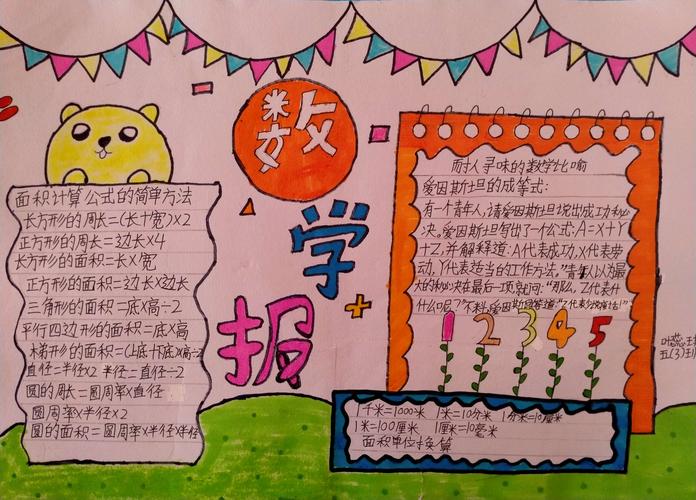 数
学
报
面积计算公式的简单方法
长方形的周长=(长十宽)×2
正方形的周长=边长×4
长方形的面积=长×宽
正方形的面积=边长×边长
三角形的面积=底×高÷2
平行四边形的面积=底×高
梯形的面积=(上底十下底)×高÷2
直径=半径×2 半径=直径÷2
圆的周长=圆周率×直径
圆周率×半径×2
圆的面积=圆周率×半径×半径
耐人寻味的数学比喻
爱因斯坦的成等式:
有一个青年人,请爱因斯坦说出成功秘
决。爱因斯坦写出了一个公式:A=X+Y
+Z,并解释道:A代表成功,X代表劳
动,Y代表适当的工作方法,"青年人以为最
大的秘决在最后一项就问:"那么,Z代表什
什么呢?"不料,爱因斯坦回答道:"Z代表少说废话!"
1 2 3 4 5
1千米=1000米 1米=10分米 1分米=10厘米
1米=100厘米 1厘米=10毫米
面积单位换算
五(3)班